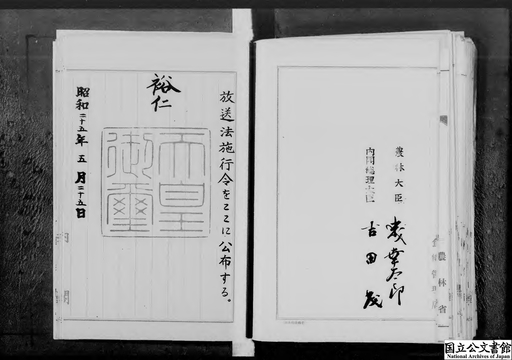 放送法施行令をここに公布する。
裕仁
天皇御璽
昭和二十五年五月二十五日
農林大臣
内閣総理大臣
吉田茂
農林省
国立公文書館
National Archives of Japan